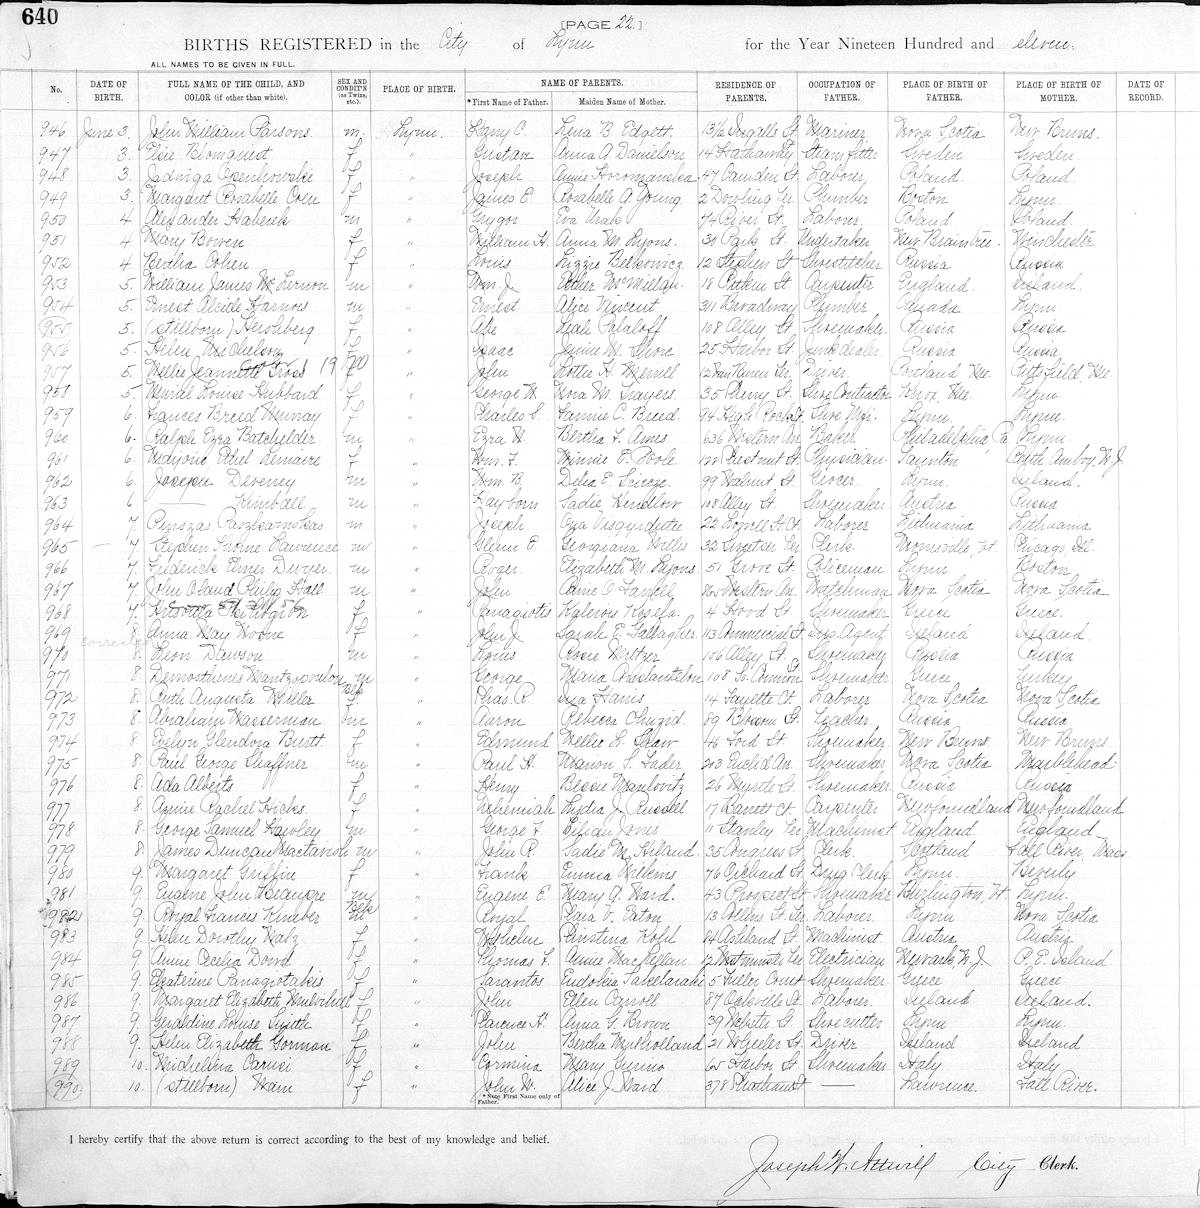 640
[PAGE 22.]
BIRTHS REGISTERED in the City of Lynn for the Year Nineteen Hundred and eleven.
ALL NAMES TO BE GIVEN IN FULL.
No. DATE OF BIRTH. FULL NAME OF THE CHILD, AND COLOR (if other than white). SEX AND CONDIT'N (as Twins, etc.). PLACE OF BIRTH. NAME OF PARENTS. RESIDENCE OF PARENTS. OCCUPATION OF FATHER. PLACE OF BIRTH OF FATHER. PLACE OF BIRTH OF MOTHER. DATE OF RECORD.
* First Name of Father. Maiden Name of Mother.
946 June 3. John William Parsons. m. Lynn. Harry C. Lena B. Edgett. 13½ Ingalls St. Mariner Nova Scotia New Bruns.
947 3. Elsie Blomquist f " Gustav Anna A. Danielson 14 Hathaway Steamfitter Sweden Sweden
948 3. Jadwiga f " Joseph Annie 47 Camden St. Laborer Poland Poland.
949 3. Margaret Rosabelle Coen f " James E. Rosabelle A. Young 2 Dowling Ter. Plumber Boston Lynn.
950 4 Alexander Haberek m " Grygor Eva 74 River St. Laborer Poland Poland.
951 4 Mary Bowen f " William H. Anna M. Lyons. 38 Park St. Undertaker New Braintree. Winchester
952 4. Bertha Cohen f " Louis Lizzie Berkowicz 12 Stephen St Shoestitcher Russia Russia
953 5. William James McLernon m " Wm. J Esther McMillan. 18 Perkins St. Carpenter England. Ireland.
954 5. Ernest Alcide Harnois m " Ernest Alice Vincent 311 Broadway Plumber Canada Lynn.
955 5. (stillborn) Hershberg f " Abe Leah Palaloff 108 Alley St. Shoemaker Russia Russia
956 5. Helen Michelson f " Isaac Jennie M. Shore 25 Harbor St. Junkdealer. Russia Russia
957 5. Nellie Jeannette Frost 19 f " John Lottie H. Merrill 12 Van Buren St. Driver. Portland Me. Pittsfield Me.
958 5. Muriel Louise Hubbard f " George W. Nora M. Travers. 35 Cherry St. Shoe Contractor Knox Me. Lynn
959 6. Frances Breed Murray f " Charles S. Fannie C. Breed 94 High Rock St. Shoe Mfr. Lynn. Lynn.
960 6. Ralph Ezra Batchelder m " Ezra W. Bertha F. Ames 636 Western Av. Baker Philadelphia Pa Lynn.
961 6. Marjorie Ethel Lemaire f " Wm. F. Minnie E. Poole 122 Chestnut St. Physician. Taunton " Perth Amboy, N.J.
962 6 Joseph Deveney m " Wm. B. Delia E. 99 Walnut St. Grocer Lynn. Ireland.
963 6 —— Kimbdell m " Hayborn Sadie 108 Alley St. Shoemaker Austria Russia
964 7 m " Joseph 22 Lowell St. Ct. Laborer Lithuania Lithuania
965 7. Stephen Thorne Lawrence m " Glenn E. Georgiana Willis 32 Sweetser Ter. Clerk. Morrisville Vt. Chicago, Ill.
966 7. Frederick Elmer Dwyer. m " Roger Elizabeth M. Lyons. 51 Grove St. Policeman Lynn. Boston
967 7. John Oland Philip Hall m " John Annie O'Farrell Western Av. Watchman Nova Scotia Nova Scotia
968 7. f " Panagiotis 4 Hood St. Shoemaker Greece Greece.
969 8. Anna May Moore f " John J. Sarah E. Gallagher. 113 Commercial St. Ins. Agent Ireland Ireland
970 8. Leon Dawson m " Rosie Meltzer 106 Alley St. Shoemaker Russia Russia
971 8. Demosthenes Mantzopoulos m " George Maria 108 So. Common St. Shoemaker Greece Turkey
972 8. Ruth Augusta Miller Blk f " Chas. R. Iva Harris 14 Fayette Ct. Laborer Nova Scotia Nova Scotia
973 8. Abraham Wasserman m " Aaron Rebecca 89 Blossom St. Teacher Russia Russia
974 8. Evelyn Glendora Burtt f " Edmund Nellie L. Shaw 46 Ford St. Shoemaker New Bruns New Bruns
975 8. Paul George Shaffner m " Paul H. Manon S. Lader 203 Euclid Av. Shoemaker Nova Scotia Marblehead
976 8. Ada Alberts f " Henry Bessie 26 Shoemaker Russia Russia
977 8. Annie Rachel Hicks. f " Nehemiah Lydia J. Russell 17 Barrett Ct Carpenter Newfoundland Newfoundland
978 8. George Samuel Hawley m " George F. Lilian Jones 11 Stanley Ter. Machinist England England
979 8. James Duncan Mactavish m " John R. Sadie M. Hiland. 35 Congress St. Clerk. Scotland Fall River, Mass
980 9. Margaret Griffin f " Frank Emma Wilkens 76 Orchard St. Drug Clerk Lynn. Beverly
981 9. Eugene John Beaupre m " Eugene E. Mary A. Ward. 43 Prospect St Shoemaker Burlington Vt. Lynn.
982 9. Royal Francis Knebor Blk m " Royal Clara V. Eaton 13 Ter. Laborer. Lynn Nova Scotia
983 9. Helen Dorothy Walz f " Wilhelm Christina Kohl 14 Ashland St. Machinist Austria Austria
984 9. Annie Cecelia Dowd f " Thomas F. Annie MacLellan 12 Westminster Ter. Electrician Newark, N.J. P.E. Island
985 9. Ekaterine Panagiotakis f " Sarantos Eudokia Sakelaraki 5 Fuller Court Shoemaker Greece Greece
986 9. Margaret Elizabeth f " John Ellen Carroll 87 Oakville St. Laborer. Ireland Ireland.
987 9. Geraldine Louise Smith f " Clarence H. Anna G. Brown 39 Webster St. Shoecutter Lynn Lynn.
988 9. Helen Elizabeth Gorman f " John Bertha Mulholland 21 Wheeler St. Driver Ireland Ireland
989 10. Michelina Carusi f " Carmina Mary 65 Harbor St. Shoemaker Italy Italy
990 10. (stillborn) Ham f " John W. Alice J. Ward 378 Chatham St — Lawrence. Fall River.
* Note First Name only of Father.
I hereby certify that the above return is correct according to the best of my knowledge and belief.
Joseph W. Attwill City Clerk.